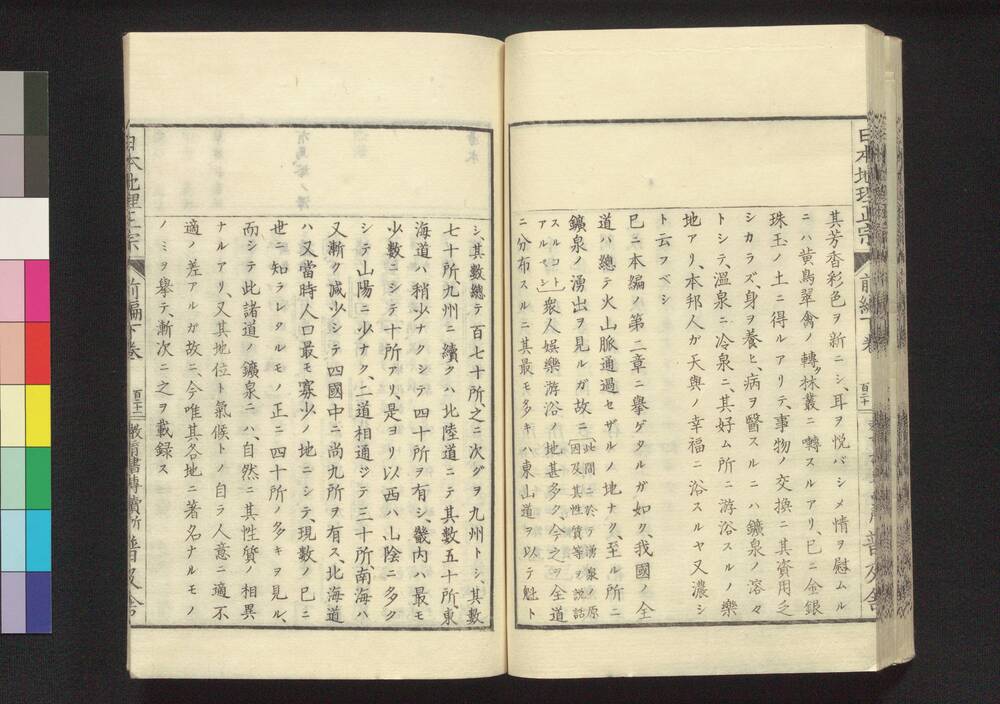 其芳香彩色ヲ新ニシ、耳ヲ悦バシメ情ヲ慰ムル
ニハ黄鳥翠禽ノ轉抹叢ニ囀スルアリ、已ニ金銀
珠玉ノ土ニ得ルアリテ、事物ノ交換ニ其資用乏
シカラズ、身ヲ養ヒ、病ヲ醫スルニハ鑛泉ノ溶々
トシテ、温泉ニ冷泉ニ、其好ム所ニ游浴スルノ樂
地アリ、本邦人ガ天與ノ幸福ニ浴スルヤ又濃シ
ト云フベシ
已ニ本編ノ第二章ニ擧ゲタルガ如ク、我國ノ全
道ハ總テ火山脈通過セザルノ地ナク、至ル所ニ
鑛泉ノ湧出ヲ見ルガ故ニ
此間ニ於テ湧泉ノ原
因及其性質等ヲ説話
スルコト
アルベシ
衆人娯樂游浴ノ地甚多ク、今之ヲ全道
ニ分布スルニ其最モ多キハ東山道ヲ以テ魁ト
日本地理正宗
前編下卷
百二十
普及舍
シ、其數總テ百七十所、之ニ次グヲ九州トシ、其數
七十所、九州ニ續クハ北陸道ニテ其數五十所、東
海道ハ稍少ナクシテ四十所ヲ有シ、畿内ハ最モ
少數ニシテ十所アリ、是ヨリ以西ハ山陰ニ多ク
シテ山陽ニ少ナク、二道相通ジテ三十所、南海ハ
又漸ク減少シテ四國中ニ尚九所ヲ有ス、北海道
ハ又當時人口最モ寡少ノ地ニシテ、現數ノ已ニ
世ニ知ラレタルモノ正ニ四十所ノ多キヲ見ル、
而シテ此諸道ノ鑛泉ニハ、自然ニ其性質ノ相異
ナルアリ、又其地位ト氣候トノ自ラ人意ニ適不
適ノ差アルガ故ニ、今唯其各地ニ著名ナルモノ
ノミヲ擧テ、漸次ニ之ヲ載録ス
日本地理正宗
前編下卷
百二十一
教育書專賣所
普及舍